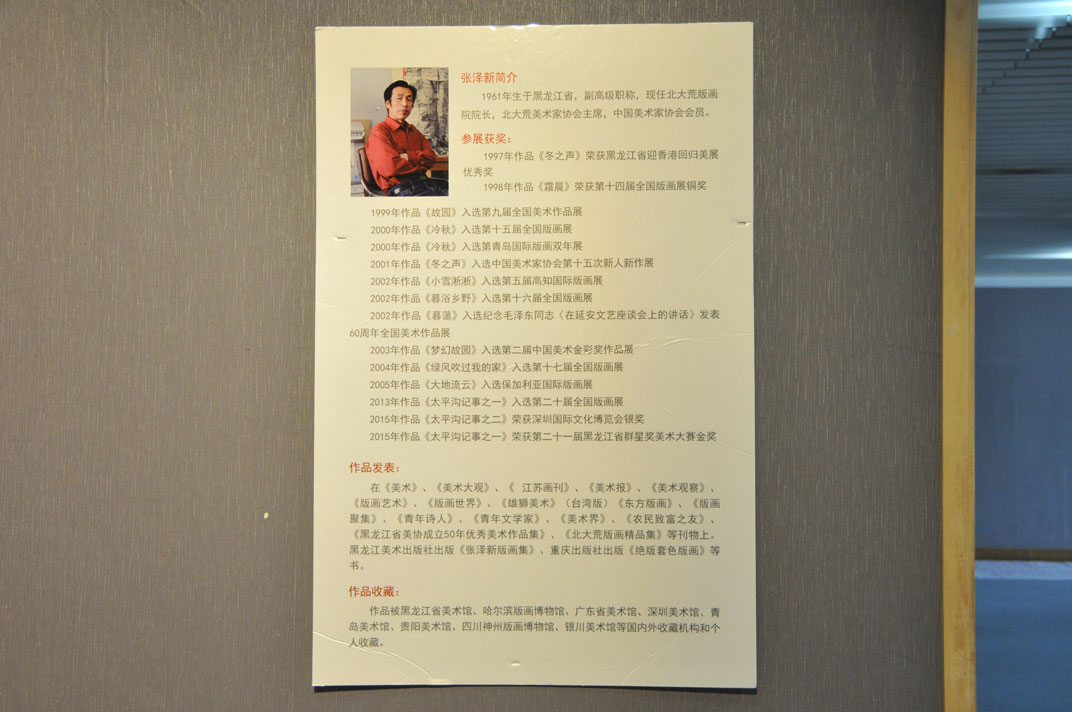 张泽新简介
1961年生于黑龙江省，副高级职称，现任北大荒版画
院院长，北大荒美术家协会主席，中国美术家协会会员。
参展获奖：
1997年作品《冬之声》荣获黑龙江省迎香港回归美展
优秀奖
1998年作品《霜晨》荣获第十四届全国版画展铜奖
1999年作品《故园》入选第九届全国美术作品展
2000年作品《冷秋》入选第十五届全国版画展
2000年作品《冷秋》入选第青岛国际版画双年展
2001年作品《冬之声》入选中国美术家协会第十五次新人新作展
2002年作品《小雪淅淅》入选第五届高知国际版画展
2002年作品《暮浴乡野》入选第十六届全国版画展
2002年作品《暮蔼》入选纪念毛泽东同志〈在延安文艺座谈会上的讲话〉发表
60周年全国美术作品展
2003年作品《梦幻故园》入选第二届中国美术金彩奖作品展
2004年作品《绿风吹过我的家》入选第十七届全国版画展
2005年作品《大地流云》入选保加利亚国际版画展
2013年作品《太平沟记事之一》入选第二十届全国版画展
2015年作品《太平沟记事之二》荣获深圳国际文化博览会银奖
2015年作品《太平沟记事之一》荣获第二十一届黑龙江省群星奖美术大赛金奖
作品发表：
在《美术》、《美术大观》、《 江苏画刊》、《美术报》、《美术观察》、
《版画艺术》、《版画世界》、《雄狮美术》（台湾版）《东方版画》、《版画
聚集》、《青年诗人》、《青年文学家》、《美术界》、《农民致富之友》、
《黑龙江省美协成立50年优秀美术作品集》、《北大荒版画精品集》等刊物上。
黑龙江美术出版社出版《张泽新版画集》、重庆出版社出版《绝版套色版画》等
书。
作品收藏：
作品被黑龙江省美术馆、哈尔滨版画博物馆、广东省美术馆、深圳美术馆、青
岛美术馆、贵阳美术馆、四川神州版画博物馆、银川美术馆等国内外收藏机构和个
人收藏。